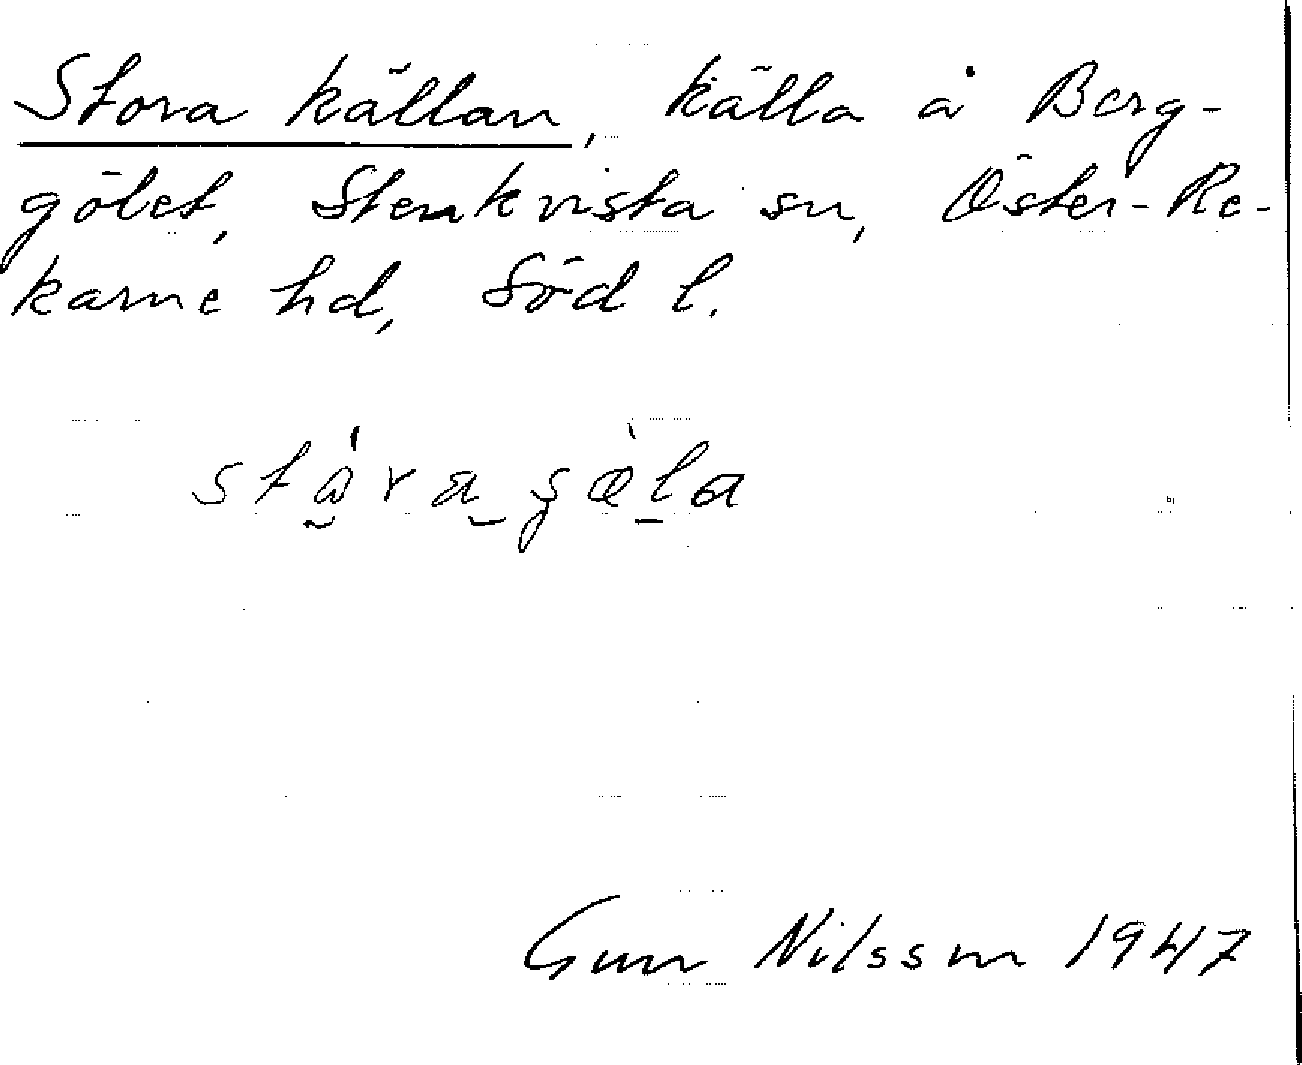 Stora källan, källa å Berg-
gölet, Stenkvista sn, Öster-Re-
karne hd, Söd l.
Gun Nilsson 1947